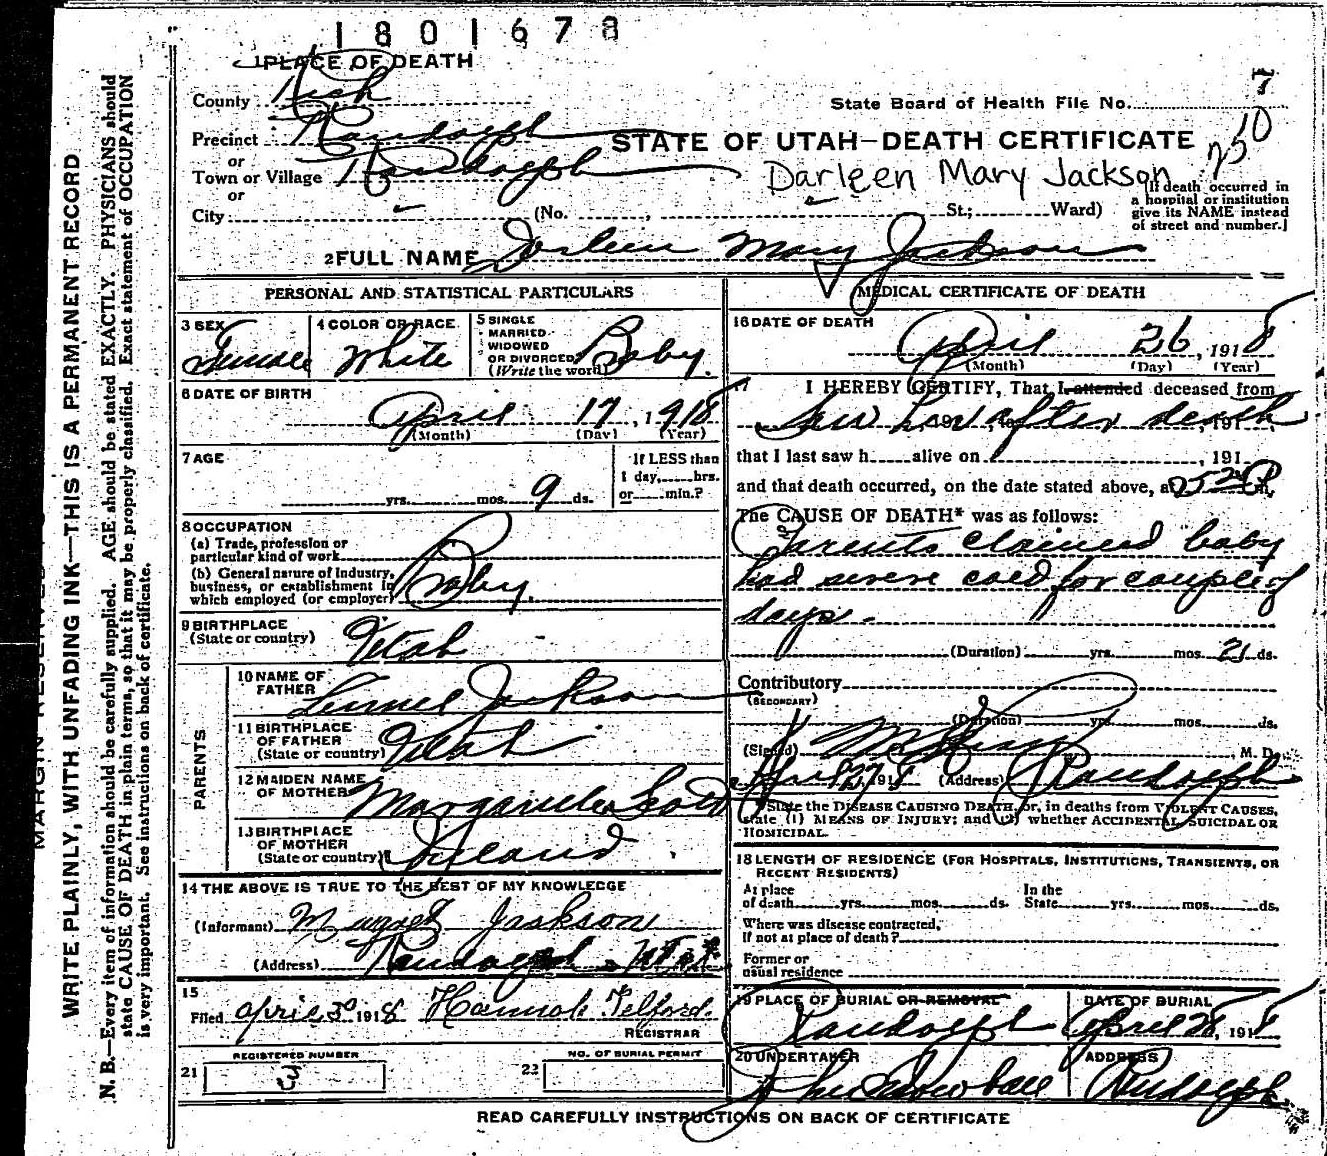 1801678
1 PLACE OF DEATH
County Rich
State Board of Health File No. 7
Precinct Randolph
STATE OF UTAH—DEATH CERTIFICATE
10
or
Town or Village Randolph
Darleen Mary Jackson
or
City (No. , St.; Ward)
[If death occurred in
a hospital or institution
give its NAME instead
of street and number.]
2 FULL NAME Darleen Mary Jackson
PERSONAL AND STATISTICAL PARTICULARS
3 SEX Female
4 COLOR OR RACE White
5 SINGLE
MARRIED
WIDOWED
OR DIVORCED
(Write the word) Baby.
6 DATE OF BIRTH
April 17, 1918
(Month) (Day) (Year)
7 AGE
yrs. mos. 9 ds.
If LESS than
1 day, hrs.
or min.?
8 OCCUPATION
(a) Trade, profession or
particular kind of work
(b) General nature of Industry,
business, or establishment in
which employed (or employer) Baby.
9 BIRTHPLACE
(State or country) Utah
PARENTS
10 NAME OF
FATHER Jackson
11 BIRTHPLACE
OF FATHER
(State or country) Utah
12 MAIDEN NAME
OF MOTHER
13 BIRTHPLACE
OF MOTHER
(State or country)
14 THE ABOVE IS TRUE TO THE BEST OF MY KNOWLEDGE
(Informant) Jackson
(Address) Randolph Utah
15
Filed April 30 1918 Hannah Telford.
REGISTRAR
REGISTERED NUMBER
21 3
NO. OF BURIAL PERMIT
22
MEDICAL CERTIFICATE OF DEATH
16 DATE OF DEATH
April 26, 1918
(Month) (Day) (Year)
17 I HEREBY CERTIFY, That I attended deceased from
Saw her after death
that I last saw h alive on , 191
and that death occurred, on the date stated above, at m.
The CAUSE OF DEATH* was as follows:
Parents claimed baby
had severe cold for couple of
days.
(Duration) yrs. mos. 21 ds.
Contributory
(SECONDARY)
(Duration) yrs. mos. ds.
(Signed) M. D.
191 8 (Address) Randolph
*State the DISEASE CAUSING DEATH, or, in deaths from VIOLENT CAUSES,
state (1) MEANS OF INJURY; and (2) whether ACCIDENTAL, SUICIDAL OR
HOMICIDAL.
18 LENGTH OF RESIDENCE (FOR HOSPITALS, INSTITUTIONS, TRANSIENTS, OR
RECENT RESIDENTS)
At place
of death yrs. mos. ds.
In the
State yrs. mos. ds.
Where was disease contracted,
If not at place of death?
Former or
usual residence
19 PLACE OF BURIAL OR REMOVAL
Randolph
DATE OF BURIAL
April 28, 1918
20 UNDERTAKER
ADDRESS
Randolph
READ CAREFULLY INSTRUCTIONS ON BACK OF CERTIFICATE
WRITE PLAINLY, WITH UNFADING INK—THIS IS A PERMANENT RECORD
N. B.—Every item of information should be carefully supplied. AGE should be stated EXACTLY. PHYSICIANS should
state CAUSE OF DEATH in plain terms, so that it may be properly classified. Exact statement of OCCUPATION
is very important. See instructions on back of certificate.